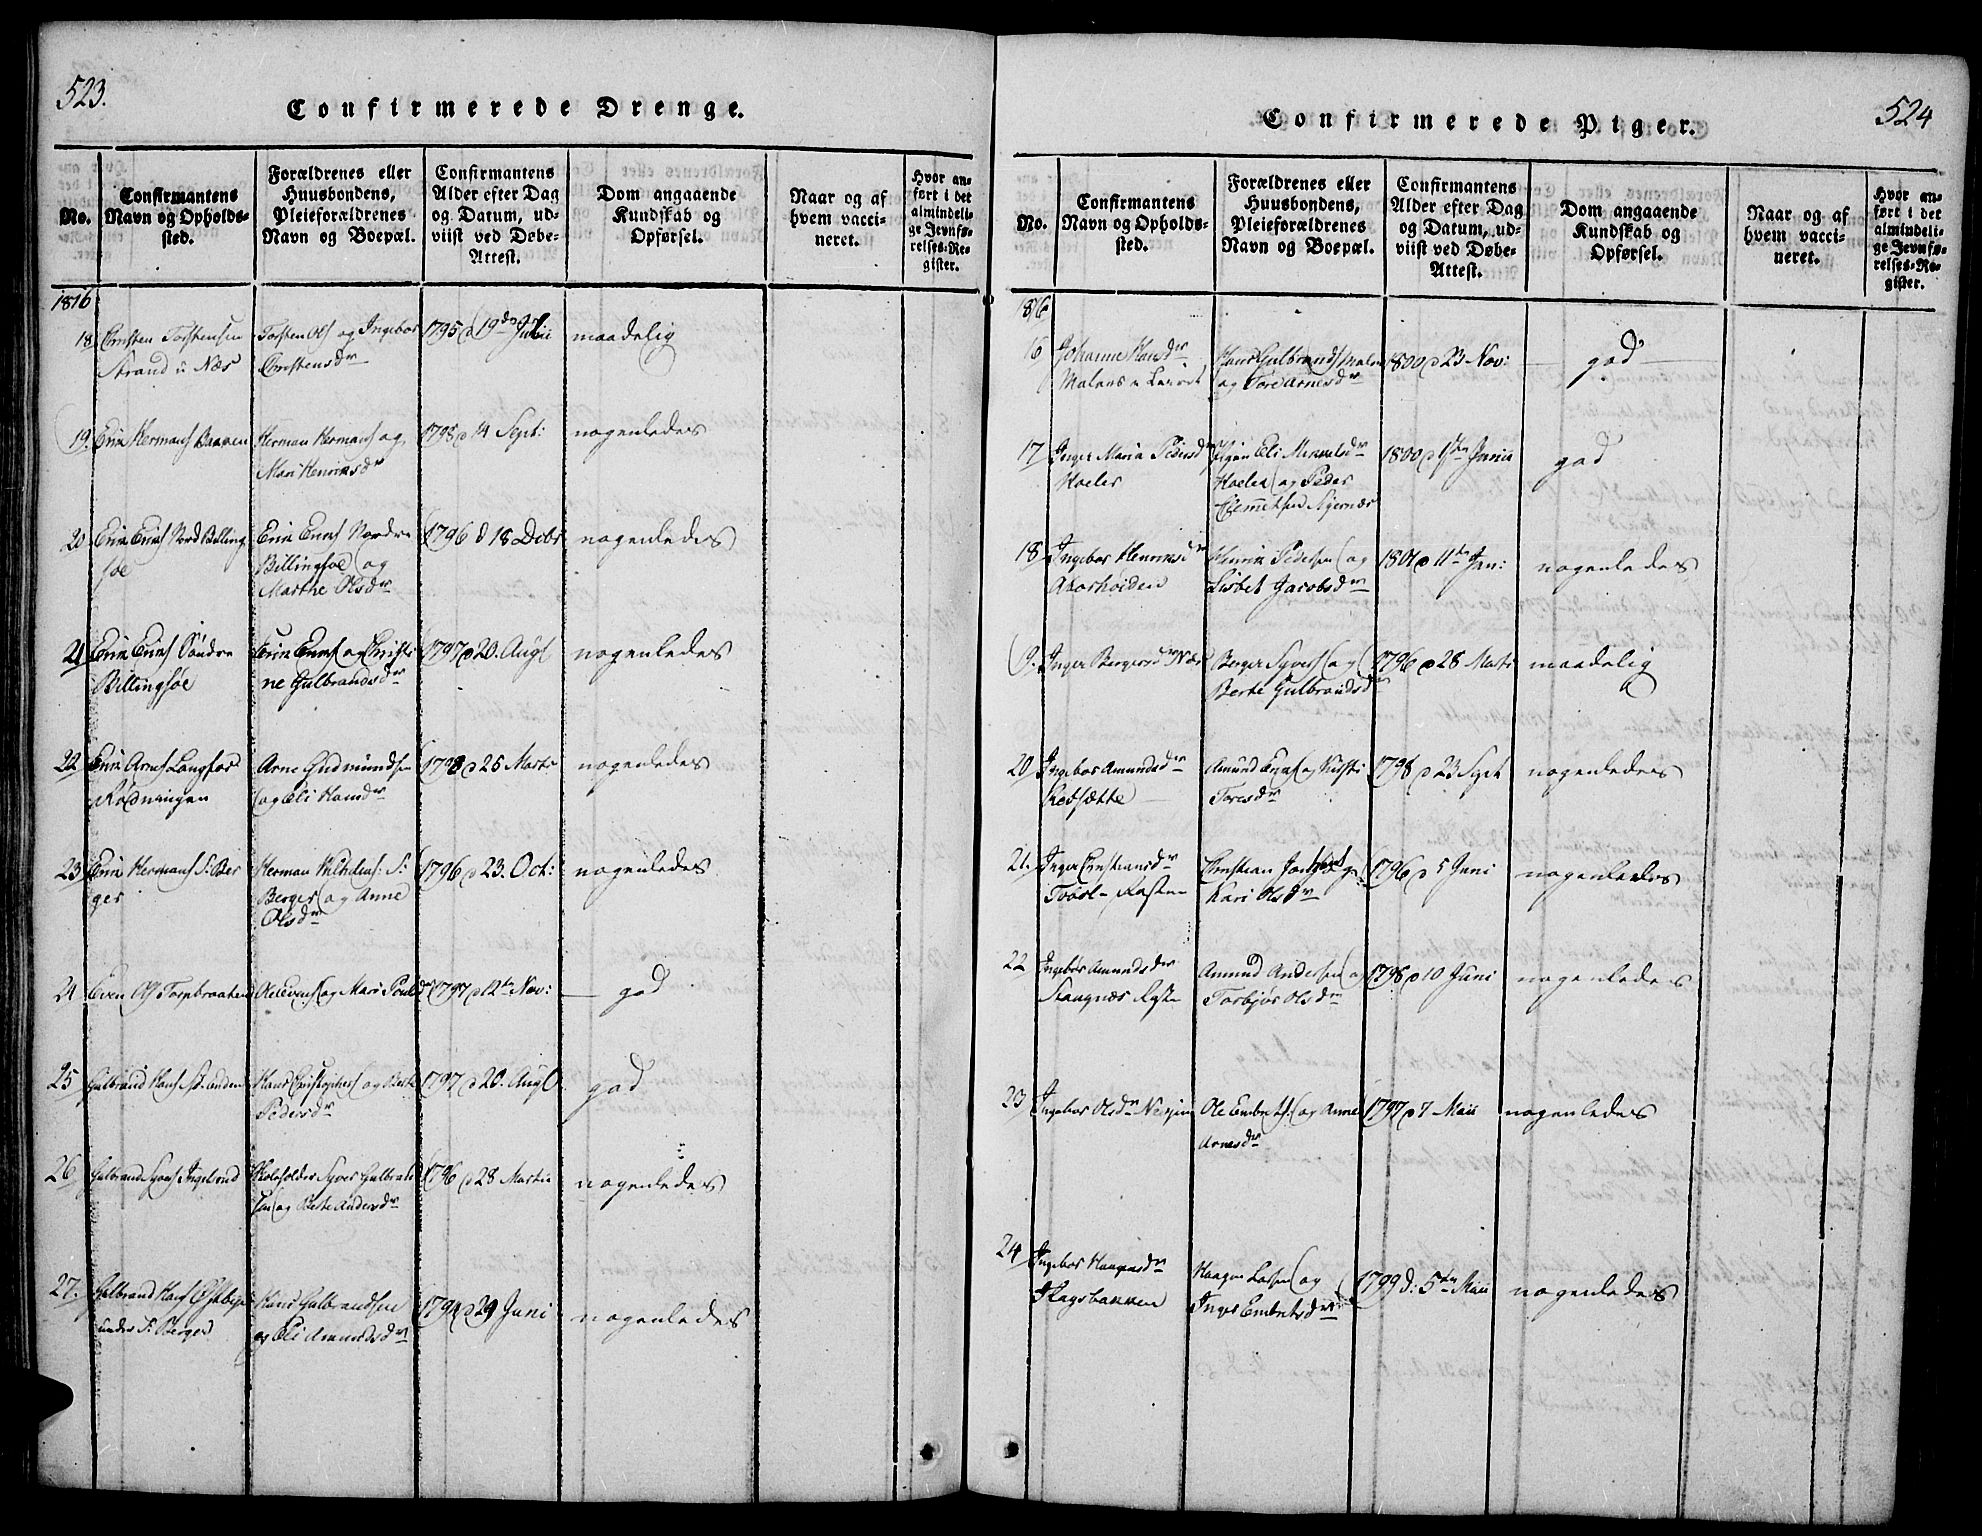 523.
Confirmerede Drenge.
No.
Confirmantens
Navn og Opholds-
sted.
Forældrenes eller
Huusbondens,
Pleieforældrenes
Navn og Boepæl.
Confirmantens
Alder efter Dag
og Datum, ud-
viist ved Døbe-
Attest.
Dom angaaende
Kundskab og
Opførsel.
Naar og af
hvem vacci-
neret.
Hvor an-
ført i det
almindeli-
ge Jevnfø-
relses-Re-
gister.
1816
18 Christen Torstensen
Strand i Næs
Torsten Ols og Ingebor
Christensdr
1795 d 19de Julii
maadelig
19. Erik Hermans Baaven
Herman Hermans og
Mari Henriksdr
1795 d 14 Sept:
nogenledes
20 Erik Eriks Nord Billing
soe
Erik Eriks Nordre
Billingsoe og
Marthe Olsdr
1796 d 18 Decbr
nogenledes
21 Erik Eriks Søndre
Billingsoe
Erik Eriks og Christi
ne Gulbrandsdr
1797 d 20. Augs
nogenledes
22 Erik Arnes
Rødningen
Arne Gudmundsen
og Eli Hansdr
1798 d 25 Marts
nogenledes
23 Erik Hermans S: Ber
ger
Herman Wilhelms: S:
Berger og Anne
Olsdr
1796 d 23. Oct:
nogenledes
24 Even Ols Torpbraaten
Ole Evens og Mari Poulsdr
1797 d 12te Nov:
god
25 Gulbrand Hans
Hans Christophers og Berte
Pedersdr
1797 d 20. Augs
god
26 Gulbrand Syvers Ingelsrud
Skoleholder Syver Gulbrand
sen og Berte Andersdr
1796 d 28 Martii
nogenledes
27. Gulbrand Hans Østbye
under S: Berger
Hans Gulbrandsen
og Eli Amundsdr
1794 d 29 Juni
nogenledes
524
Confirmerede Piger.
No.
Confirmantens
Navn og Opholds-
sted.
Forældrenes eller
Huusbondens,
Pleieforældrenes
Navn og Boepæl.
Confirmantens
Alder efter Dag
og Datum, ud-
viist ved Døbe-
Attest.
Dom angaaende
Kundskab og
Opførsel.
Naar og af
hvem vacci-
neret.
Hvor an-
ført i det
almindeli-
ge Jevnfø-
relses-Re-
gister.
1816
16 Johanne Hansdr
Hans Gulbrands
og Tore Arnesdr
1800 d 23 Nov:
god
17 Inger Maria Pedersdr
Koeler
Pigen Eli Mikkelsdr
og Peder
Clemetsen
1800 d 1ste Junii
god
18 Ingebor Henriksdr
Henrik Pedersen og
Lisbet Jacobsdr
1801 d 11te Jan:
nogenledes
19. Inger Bergersdr Næs
Berger Syvers og
Berte Gulbrandsdr
1796 d 28 Marts
maadelig
20 Ingebor Amundsdr
Rodsætte
Amund Eriks og Kirsti
Toresdr
1798 d 23 Sept
nogenledes
21. Inger Christiansdr
Christian og
Kari Olsdr
1796 d 5 Juni
nogenledes
22 Ingebor Amundsdr
Amund Andersen og
Torbjør Olsdr
1798 d 10 Juni
nogenledes
23 Ingebor Olsdr
Ole Embrets: og Anne
Arnesdr
1797 d 7 Maii
nogenledes
24 Ingebor Haagensdr
Skagsbakken
Haagen Larsen og
Inger Embretsdr
1799 d: 5te Maii
nogenledes